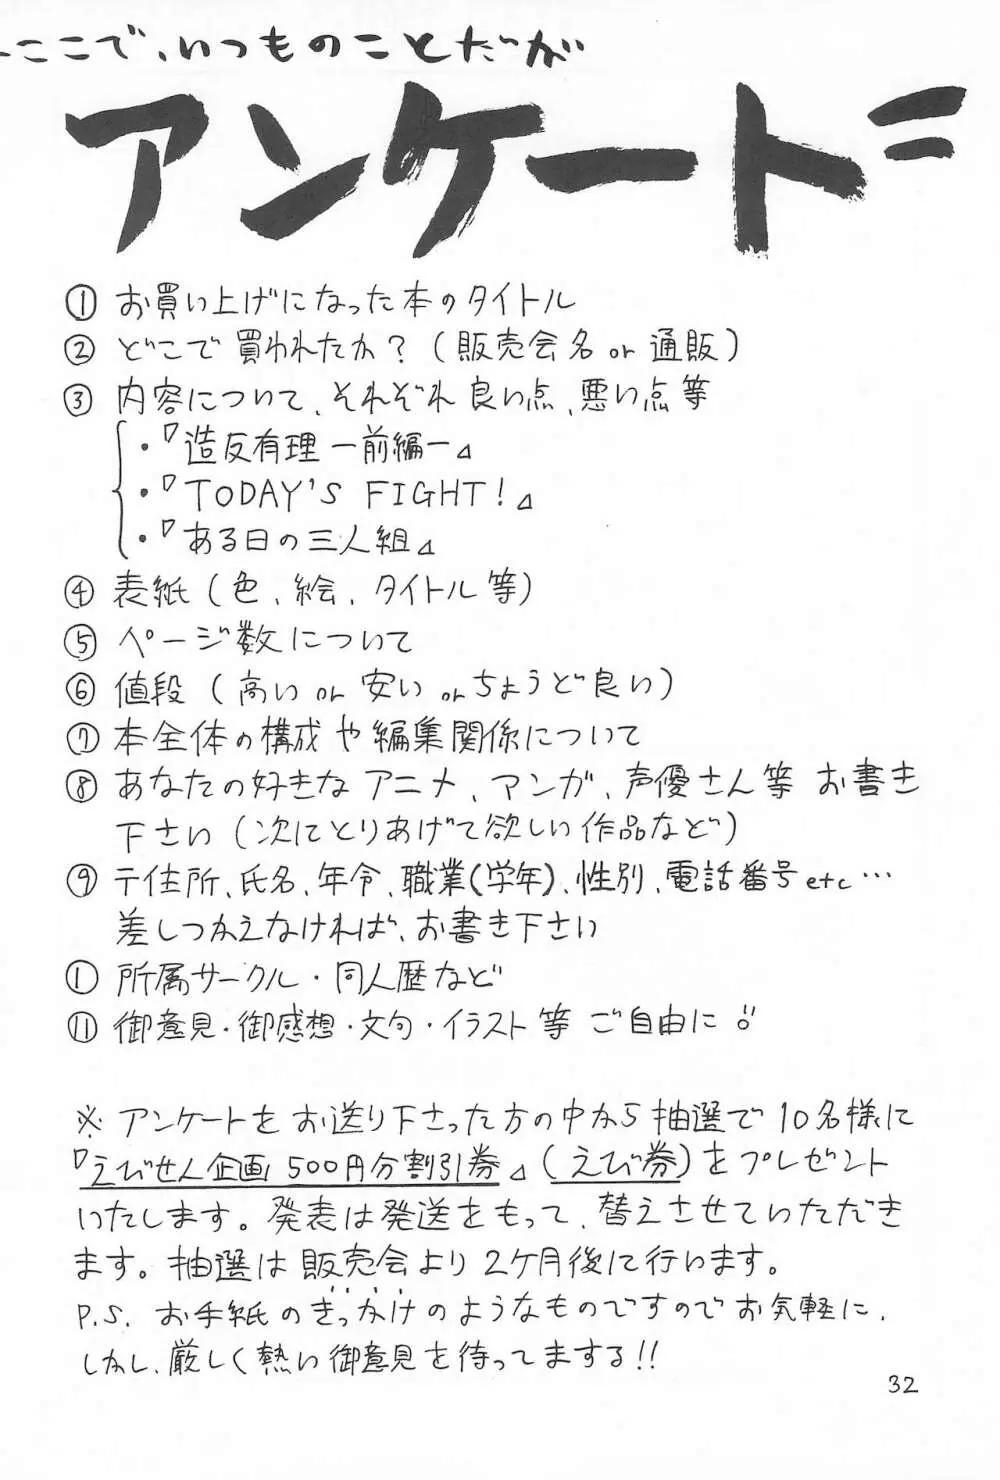 ここで、いつものことだが
アンケート
① お買い上げになった本のタイトル
② どこで買われたか？（販売会名 or 通販）
③ 内容について、それぞれ良い点、悪い点等
・『造反有理 ー前編ー』
・『TODAY'S FIGHT!』
・『ある日の三人組』
④ 表紙（色、絵、タイトル等）
⑤ ページ数について
⑥ 値段（高い or 安い or ちょうど良い）
⑦ 本全体の構成や編集関係について
⑧ あなたの好きなアニメ、マンガ、声優さん等 お書き
下さい（次にとりあげて欲しい作品など）
⑨ 〒住所、氏名、年令、職業（学年）、性別、電話番号 etc…
差しつかえなければ、お書き下さい
① 所属サークル・同人歴など
⑪ 御意見・御感想・文句・イラスト等 ご自由に
※ アンケートをお送り下さった方の中から抽選で10名様に
『えびせん企画 500円分割引券』（えび券）をプレゼント
いたします。発表は発送をもって、替えさせていただき
ます。抽選は販売会より2ケ月後に行います。
P.S. お手紙のきっかけのようなものですのでお気軽に、
しかし、厳しく熱い御意見を待ってまする!!
32